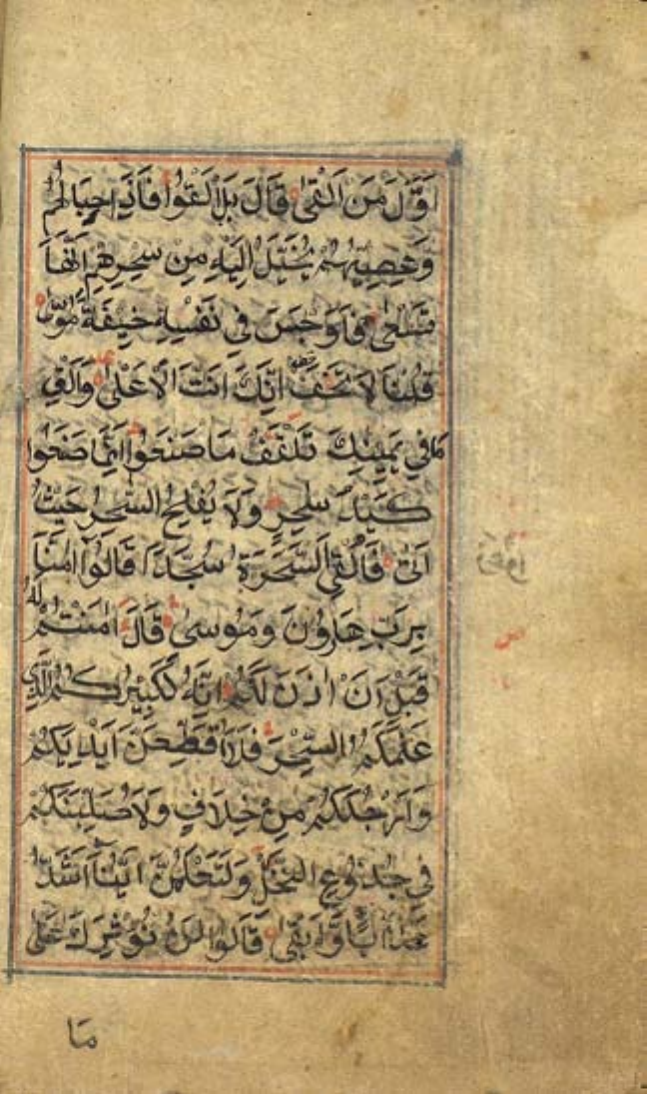 اَوَّلَ مَنْ اَلْقٰى قَالَ بَلْ اَلْقُوْا فَاِذَا حِبَالُهُمْ
وَعِصِيُّهُمْ يُخَيَّلُ اِلَيْهِ مِنْ سِحْرِهِمْ اَنَّهَا
تَسْعٰى فَاَوْجَسَ فِى نَفْسِهٖ خِيْفَةً مُوْسٰى
قُلْنَا لَا تَخَفْ اِنَّكَ اَنْتَ الْاَعْلٰى وَاَلْقِ
مَا فِى يَمِيْنِكَ تَلْقَفْ مَا صَنَعُوْا اِنَّمَا صَنَعُوْا
كَيْدُ سٰحِرٍ وَلَا يُفْلِحُ السّٰحِرُ حَيْثُ
اَتٰى فَاُلْقِىَ السَّحَرَةُ سُجَّدًا قَالُوْا اٰمَنَّا
بِرَبِّ هٰرُوْنَ وَمُوْسٰى قَالَ اٰمَنْتُمْ لَهُ
قَبْلَ اَنْ اٰذَنَ لَكُمْ اِنَّهُ لَكَبِيْرُكُمُ الَّذِى
عَلَّمَكُمُ السِّحْرَ فَلَاُقَطِّعَنَّ اَيْدِيَكُمْ
وَاَرْجُلَكُمْ مِنْ خِلَافٍ وَلَاُصَلِّبَنَّكُمْ
فِى جُذُوْعِ النَّخْلِ وَلَتَعْلَمُنَّ اَيُّنَا اَشَدُّ
عَذَابًا وَاَبْقٰى قَالُوْا لَنْ نُؤْثِرَكَ عَلٰى
مَا